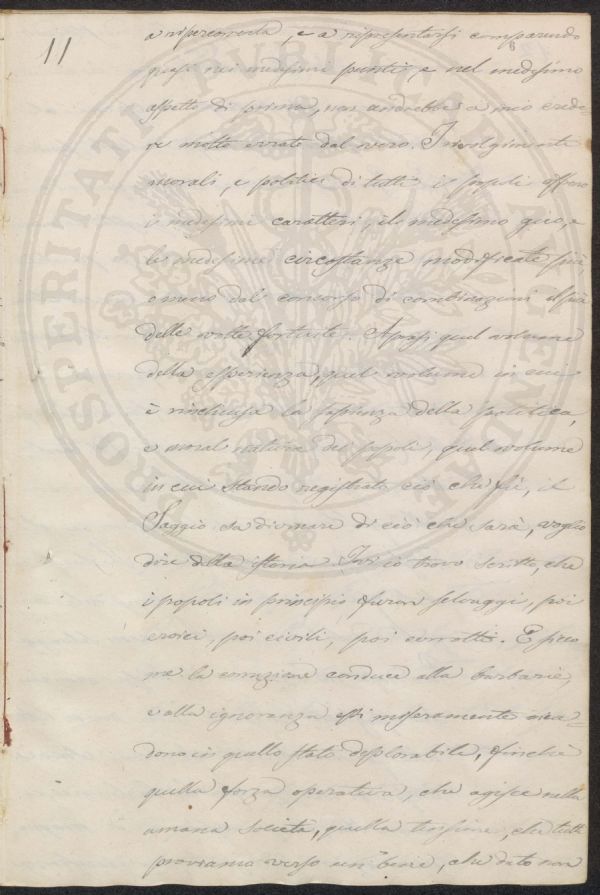 11
a ripercorrerla, e a ripresentarsi comparendo
quasi nei medesimi punti e nel medesimo
aspetto di prima, non andrebbe a mio crede-
re molto errato dal vero. I volgimenti
morali, e politici di tutti i popoli offrono
i medesimi caratteri, il medesimo giro, e
le medesime circostanze modificate più,
o meno dal concorso di combinazioni il più
delle volte fortuite. Aprasi quel volume
della esperienza, quel volume in cui
è rinchiusa la sapienza della politica,
e moral natura dei popoli, quel volume
in cui stando registrato ciò che fù, il
Saggio sa divinare di ciò che sarà, voglio
dire della istoria. Ivi io trovo scritto, che
i popoli in principio furon selvaggi, poi
eroici, poi civili, poi corrotti. E sicco
me la corruzione conduce alla barbarie,
e alla ignoranza essi miseramente rica-
dono in quello stato deplorabile, finchè
quella forza operativa, che agisce nella
umana società, quella tensione, che tutti
proviamo verso un bene, che dato non
PROSPERITATI PUBLICAE AUGENDAE